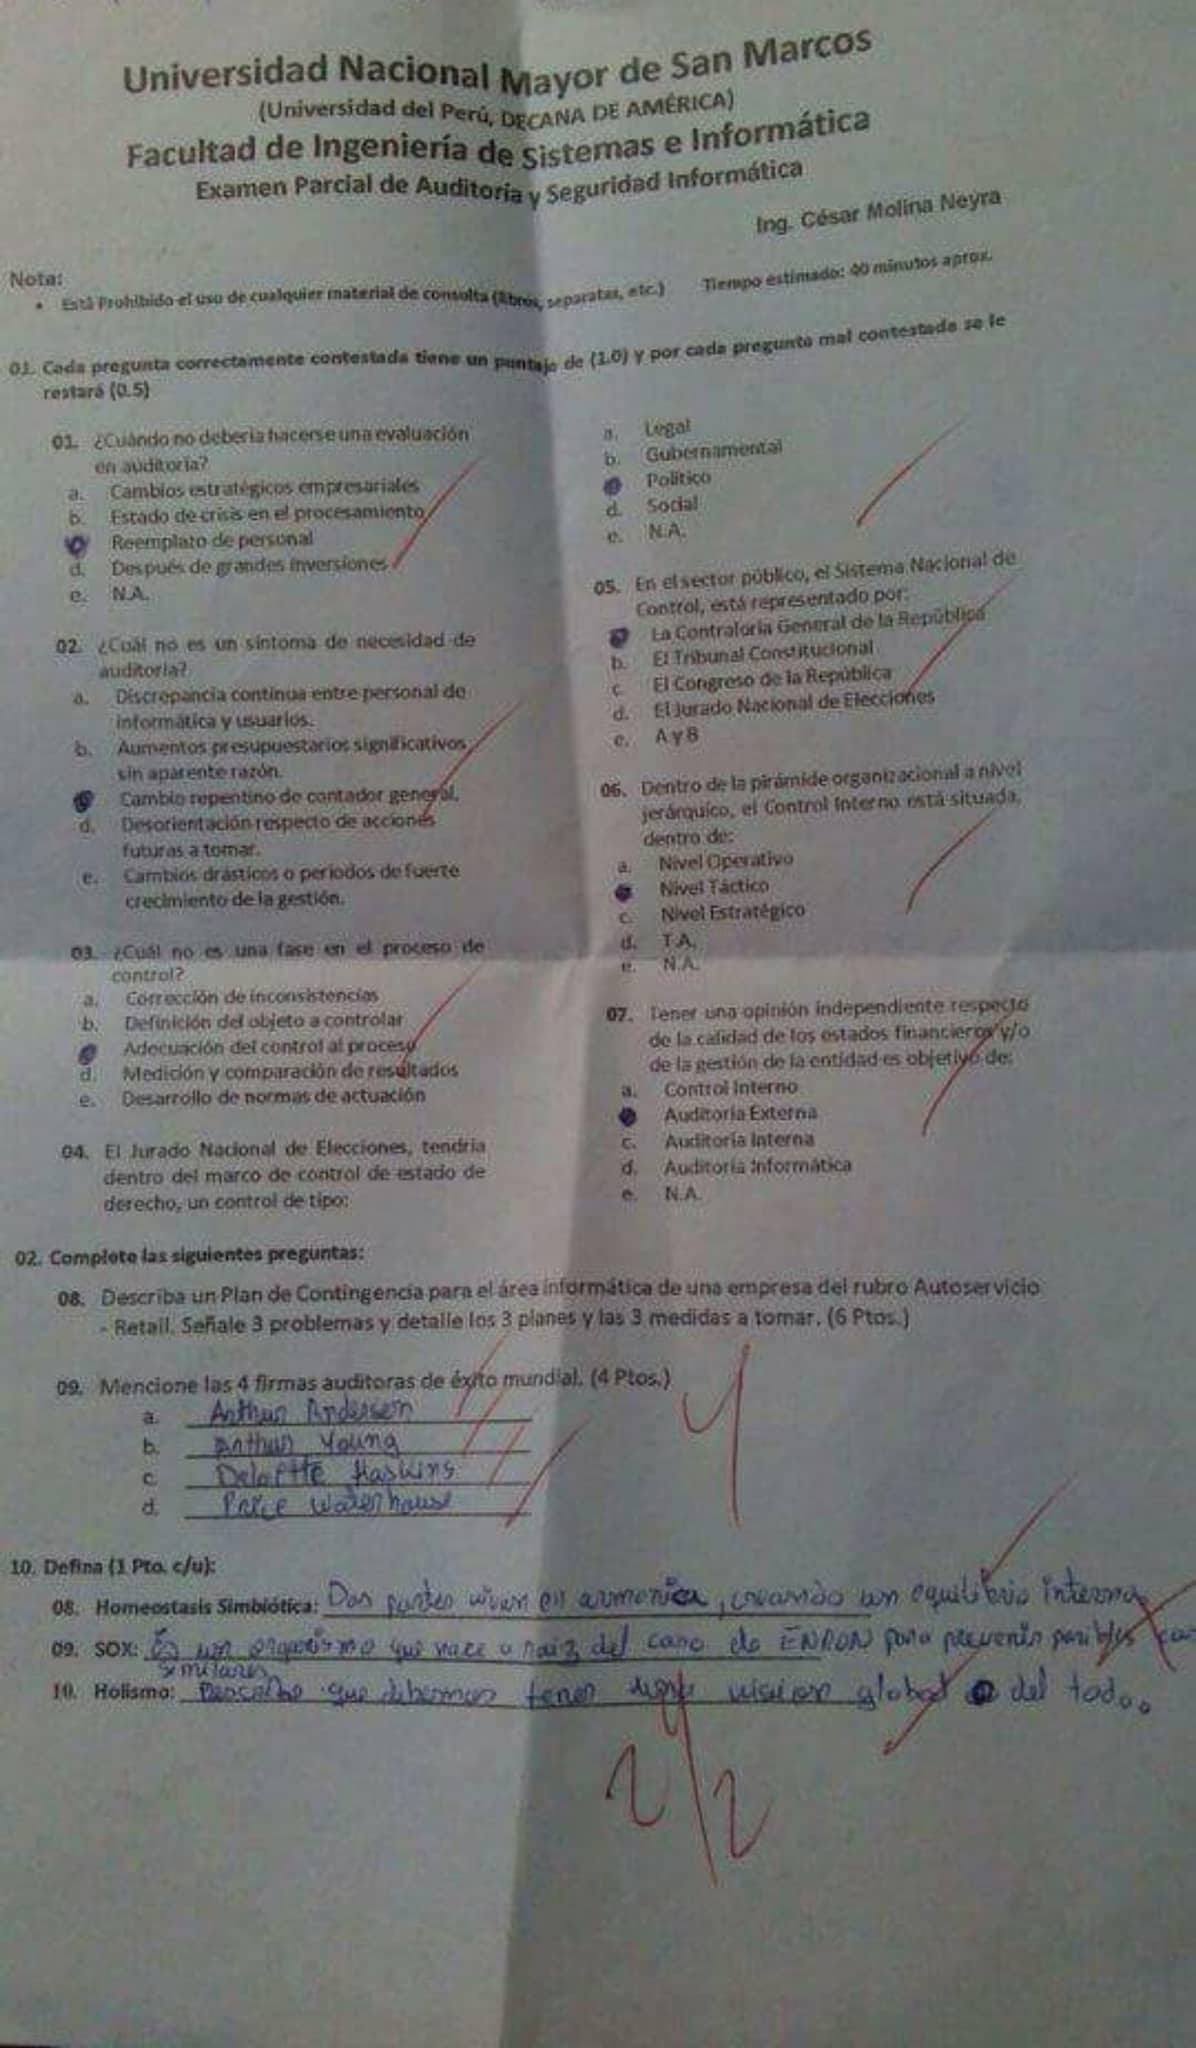 Universidad Nacional Mayor de San Marcos
(Universidad del Perú, DECANA DE AMÉRICA)
Facultad de Ingeniería de Sistemas e Informática
Examen Parcial de Auditoría y Seguridad Informática
Ing. César Molina Neyra
Nota:
• Está Prohibido el uso de cualquier material de consulta (libros, separatas, etc.) Tiempo estimado: 40 minutos aprox.
01. Cada pregunta correctamente contestada tiene un puntaje de (1.0) y por cada pregunta mal contestada se le
restará (0.5)
01. ¿Cuándo no debería hacerse una evaluación
en auditoría?
a. Cambios estratégicos empresariales
b. Estado de crisis en el procesamiento
Reemplazo de personal
d. Después de grandes inversiones
e. N.A.
02. ¿Cuál no es un síntoma de necesidad de
auditoría?
a. Discrepancia continua entre personal de
informática y usuarios.
b. Aumentos presupuestarios significativos
sin aparente razón.
Cambio repentino de contador general.
d. Desorientación respecto de acciones
futuras a tomar.
e. Cambios drásticos o períodos de fuerte
crecimiento de la gestión.
03. ¿Cuál no es una fase en el proceso de
control?
a. Corrección de inconsistencias
b. Definición del objeto a controlar
Adecuación del control al proceso
d. Medición y comparación de resultados
e. Desarrollo de normas de actuación
04. El Jurado Nacional de Elecciones, tendría
dentro del marco de control de estado de
derecho, un control de tipo:
a. Legal
b. Gubernamental
Político
d. Social
e. N.A.
05. En el sector público, el Sistema Nacional de
Control, está representado por:
La Contraloría General de la República
b. El Tribunal Constitucional
c. El Congreso de la República
d. El Jurado Nacional de Elecciones
e. A y B
06. Dentro de la pirámide organizacional a nivel
jerárquico, el Control Interno está situada,
dentro de:
a. Nivel Operativo
Nivel Táctico
c. Nivel Estratégico
d. T.A.
e. N.A.
07. Tener una opinión independiente respecto
de la calidad de los estados financieros y/o
de la gestión de la entidad es objetivo de:
a. Control Interno
Auditoría Externa
c. Auditoría Interna
d. Auditoría Informática
e. N.A.
02. Complete las siguientes preguntas:
08. Describa un Plan de Contingencia para el área informática de una empresa del rubro Autoservicio
- Retail. Señale 3 problemas y detalle los 3 planes y las 3 medidas a tomar. (6 Ptos.)
09. Mencione las 4 firmas auditoras de éxito mundial. (4 Ptos.)
a. Arthur Andersen
b. Arthur Young
c. Deloitte Haskins
d. Price Waterhouse
4
10. Defina (1 Pto. c/u):
08. Homeostasis Simbiótica: Dos partes viven en armonica, creando un equilibrio interno
09. SOX: Es un organismo que nace a raiz del caso de ENRON para prevenir posibles
similares
10. Holismo: que debemos tener vision global del todo.